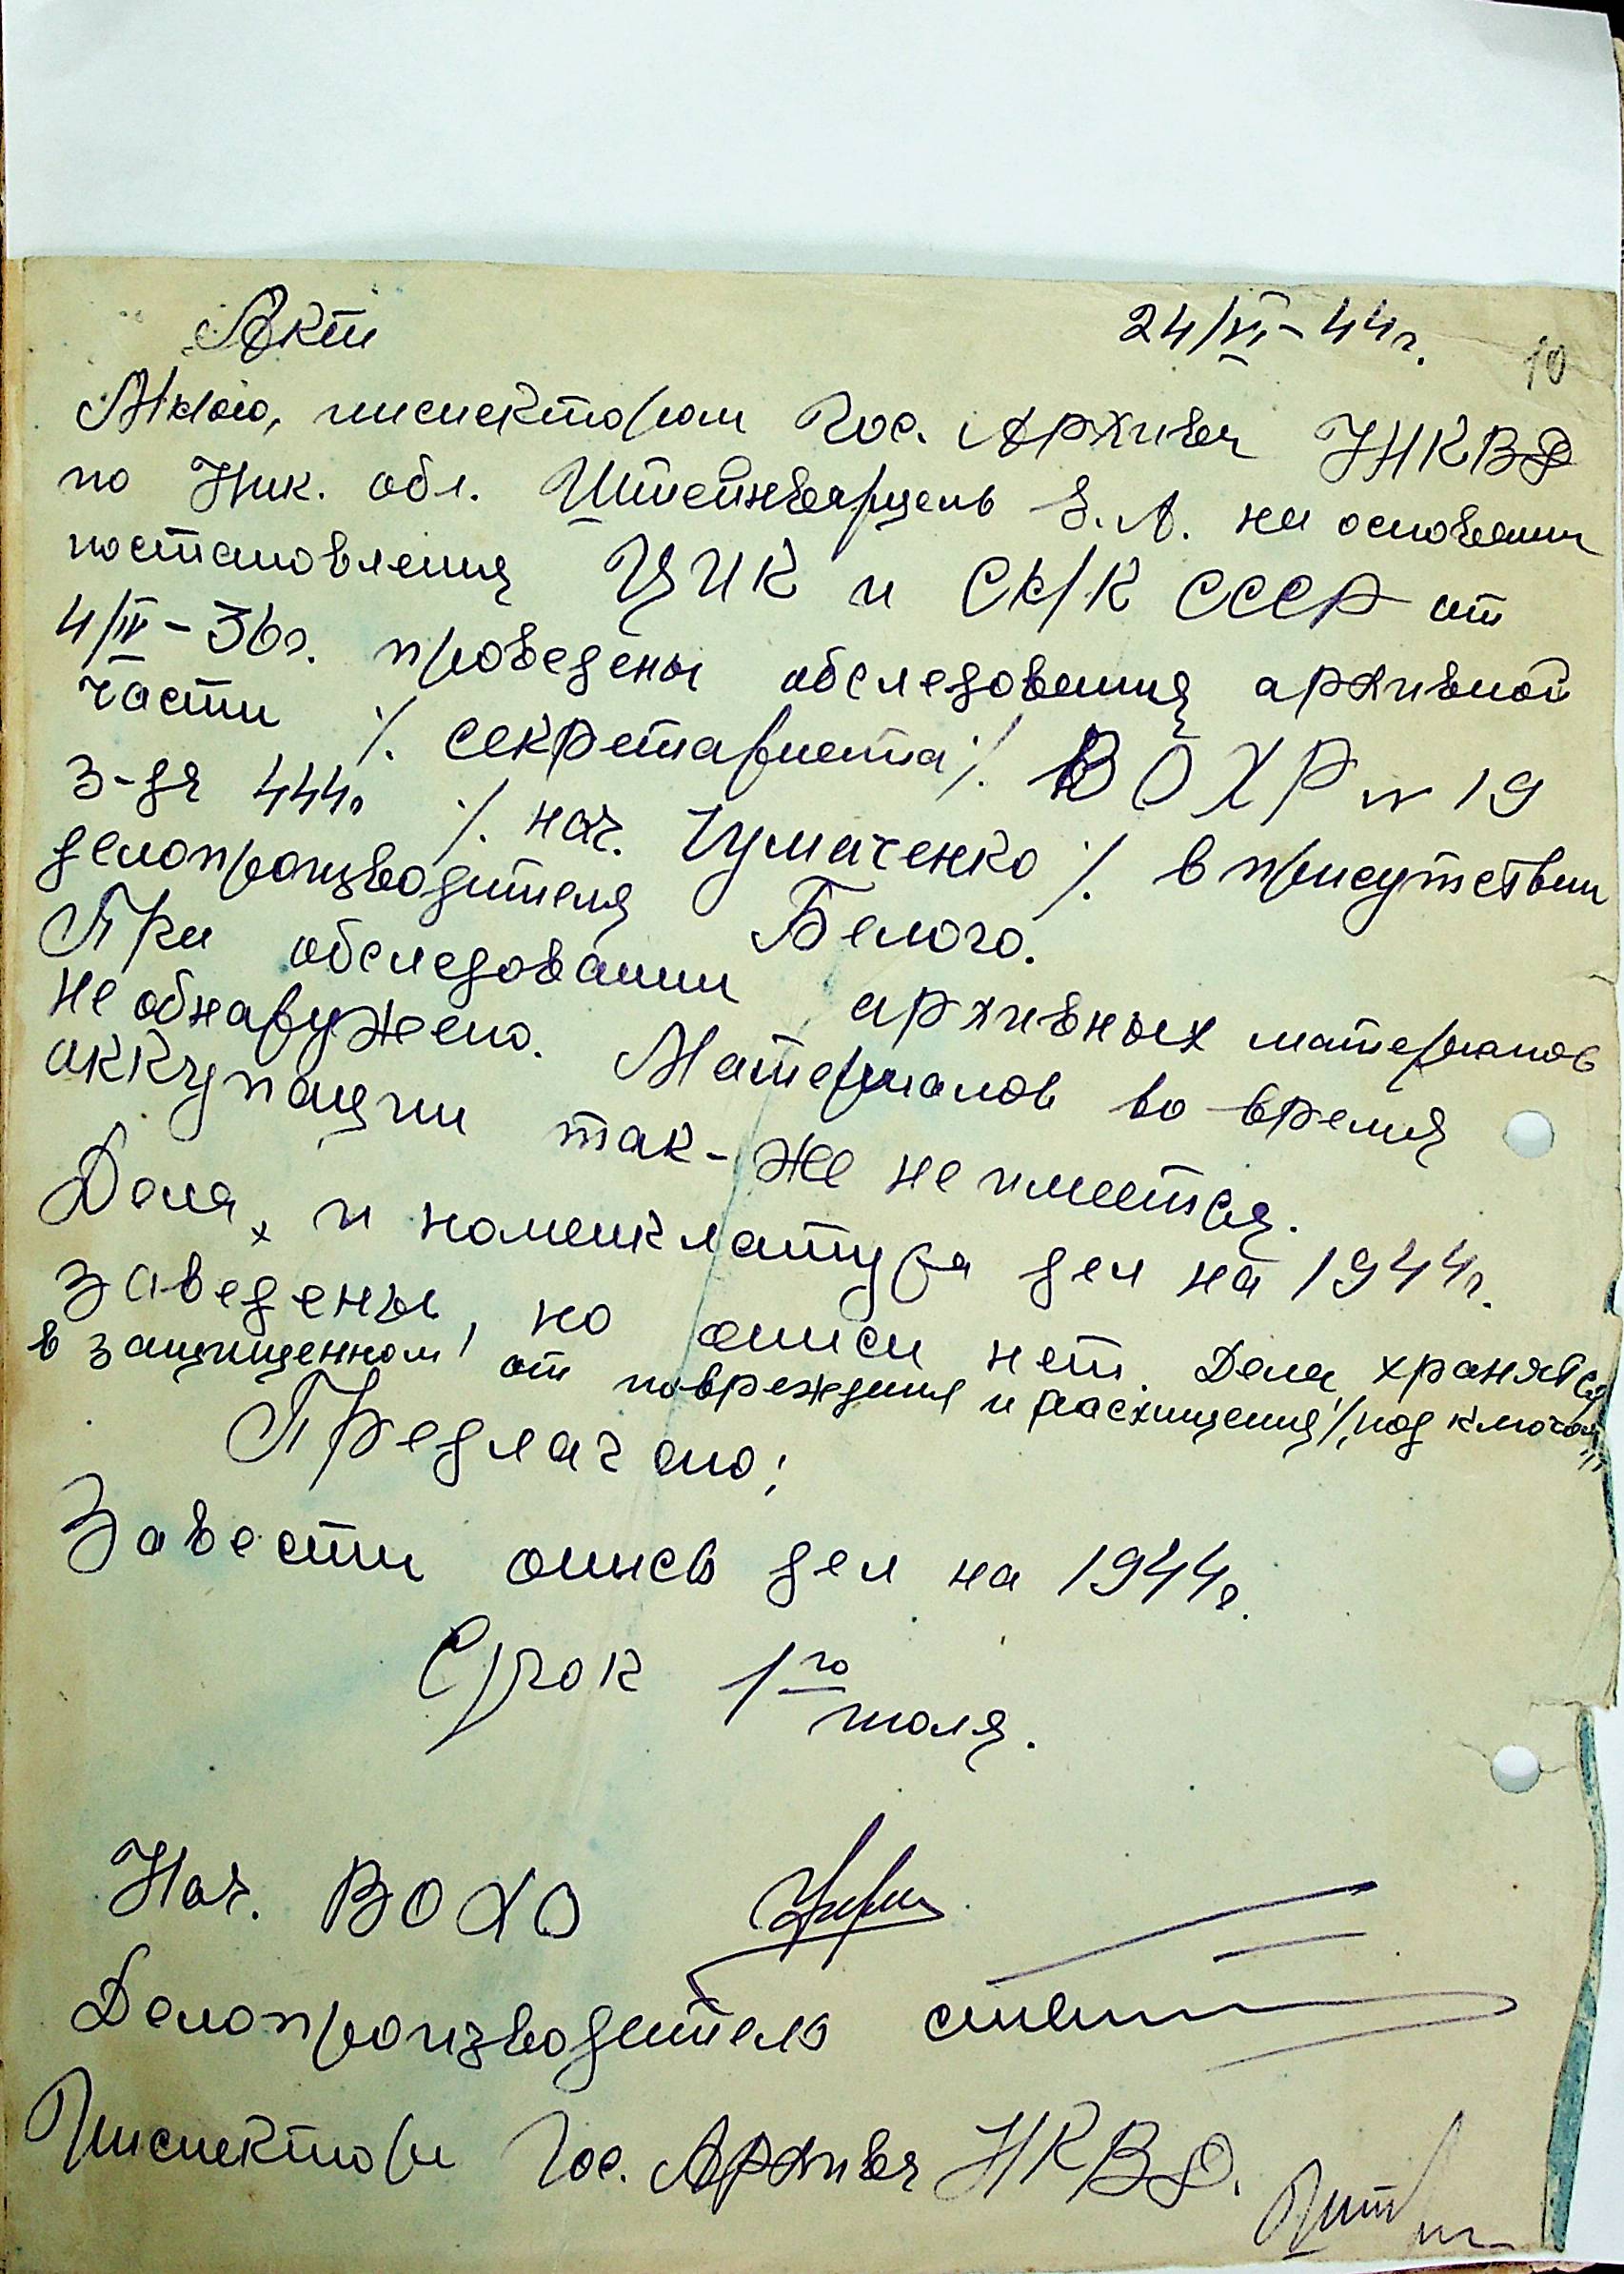 Акт 24/VI-44г. 10
Мною, инспектором Гос. Архива УНКВД
по Ник. обл. Штейнварцель Е.А. на основании
постановления ЦИК и СНК СССР от
4/IV-36г. проведены обследования архивной
части ./. секретариата ./. ВОХР № 19
з-да 444, ./. нач. Чумаченко ./. в присутствии
делопроизводителя Белого.
При обследовании архивных материалов
не обнаружено. Материалов во время
аккупации так-же не имеется.
Дела, и номенклатура дел на 1944г.
заведены, но описи нет. Дела хранятся
в защищенном от повреждения и расхищения /под ключом/
Предлагаю:
Завести опись дел на 1944г.
Срок 1го
июля.
Нач. ВОХО
Делопроизводитель
Инспектор Гос. Архива НКВД.